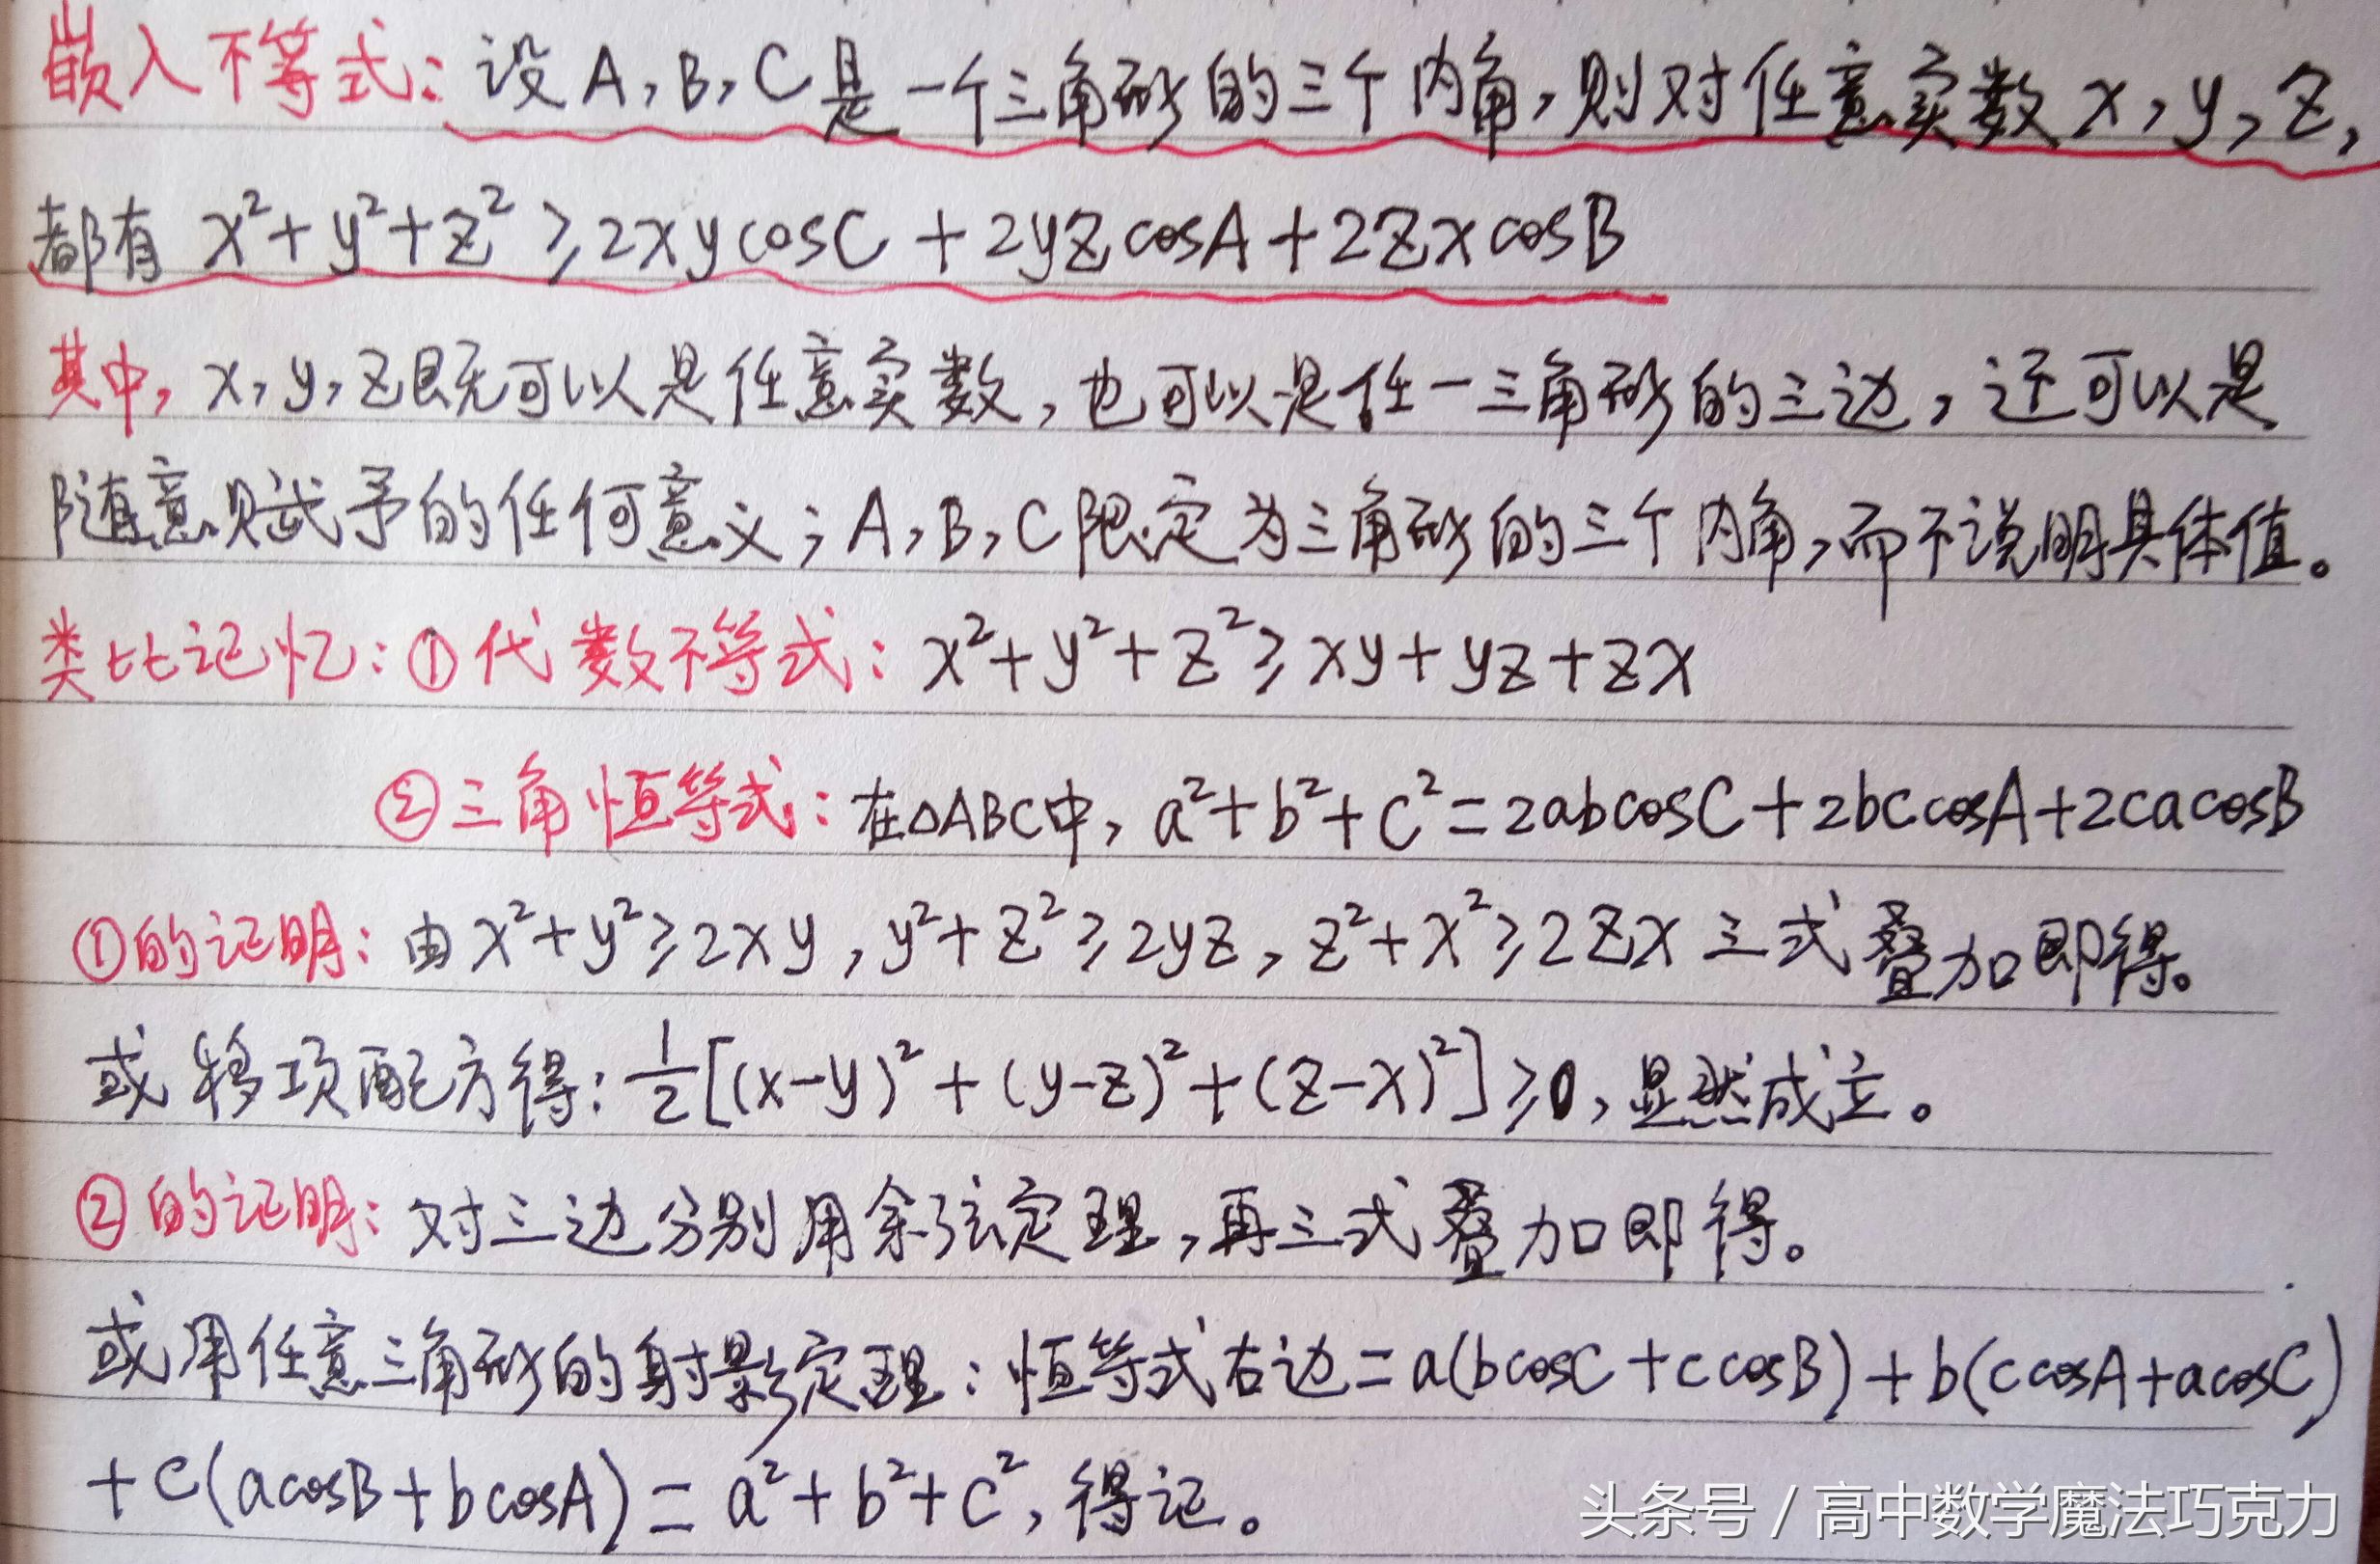 嵌入不等式：设A，B，C是一个三角形的三个内角，则对任意实数x，y，z，
都有 x²+y²+z² ≥2xycosC+2yzcosA+2zxcosB
其中，x，y，z既可以是任意实数，也可以是任一三角形的三边，还可以是
随意赋予的任何意义；A，B，C限定为三角形的三个内角，而不说明具体值。
类比记忆：①代数不等式：x²+y²+z²≥xy+yz+zx
②三角恒等式：在△ABC中，a²+b²+c²=2abcosC+2bccosA+2cacosB
①的证明：由x²+y²≥2xy，y²+z²≥2yz，z²+x²≥2zx三式叠加即得。
或移项配方得：1/2[(x-y)²+(y-z)²+(z-x)²]≥0，显然成立。
②的证明：对三边分别用余弦定理，再三式叠加即得。
或用任意三角形的射影定理：恒等式右边=a(bcosC+ccosB)+b(ccosA+acosC)
+c(acosB+bcosA)=a²+b²+c²，得证。
头条号 / 高中数学魔法巧克力